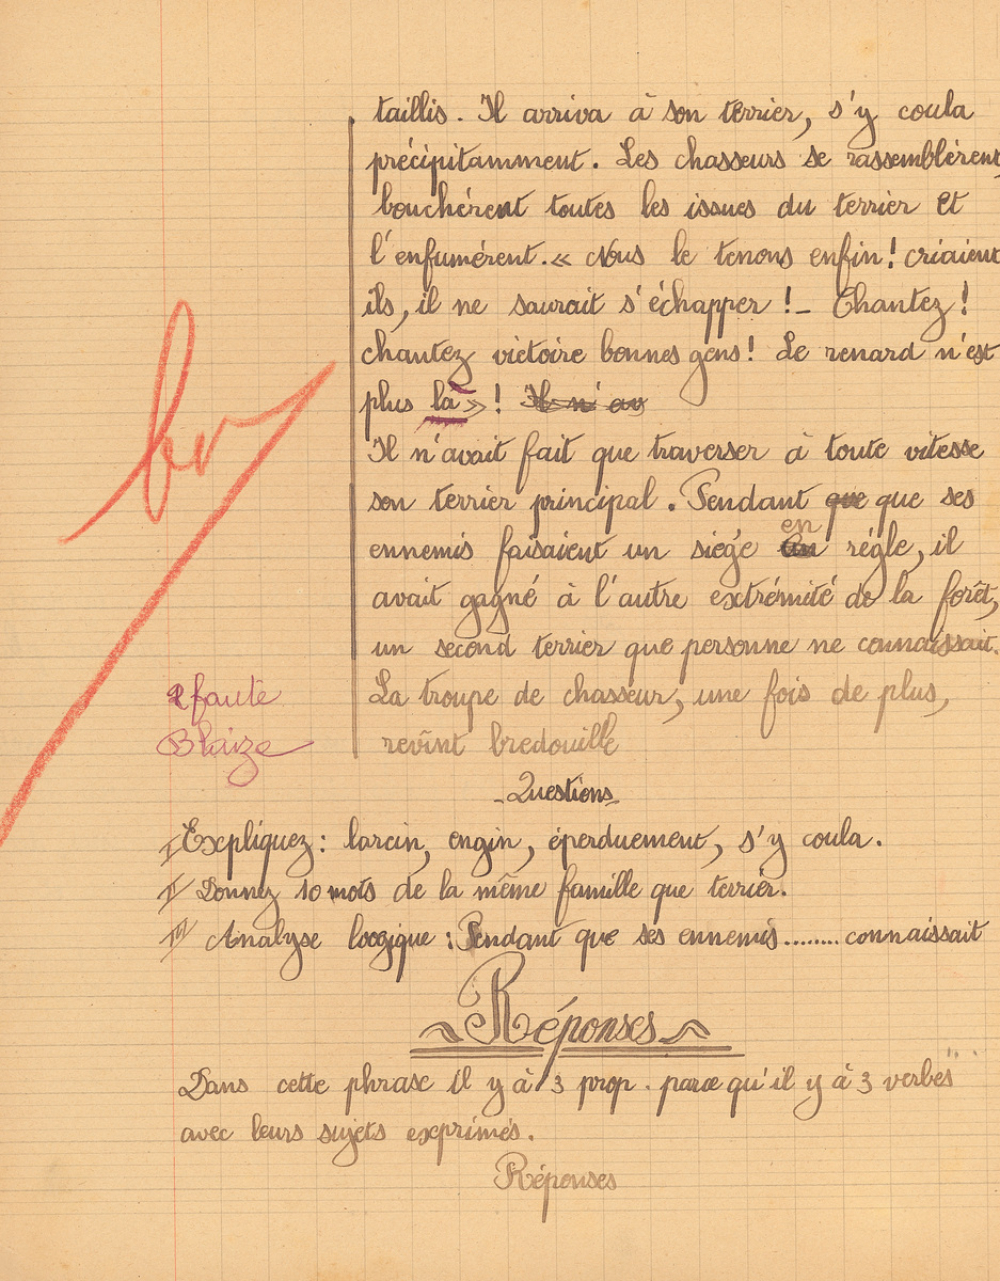 taillis. Il arriva à son terrier, s'y coula
précipitamment. Les chasseurs se rassemblérent,
bouchérent toutes les issues du terrier et
l'enfumérent. « Nous le tenons enfin ! criaient
ils, il ne saurait s'échapper ! - Chantez !
chantez victoire bonnes gens ! Le renard n'est
plus là » ! Il n'av
Il n'avait fait que traverser à toute vitesse
son terrier principal. Pendant que que ses
ennemis faisaient un siége en régle, il
avait gagné à l'autre extrémité de la forêt,
un second terrier que personne ne connaissait.
La troupe de chasseur, une fois de plus,
revînt bredouille
faute
Blaize
- Questions -
I Expliquez : larcin, engin, éperduement, s'y coula.
II Donnez 10 mots de la même famille que terrier.
III Analyse loogique : Pendant que ses ennemis........ connaissait
Réponses
Dans cette phrase il y à 3 prop. parce qu'il y à 3 verbes
avec leurs sujets exprimés.
Réponses